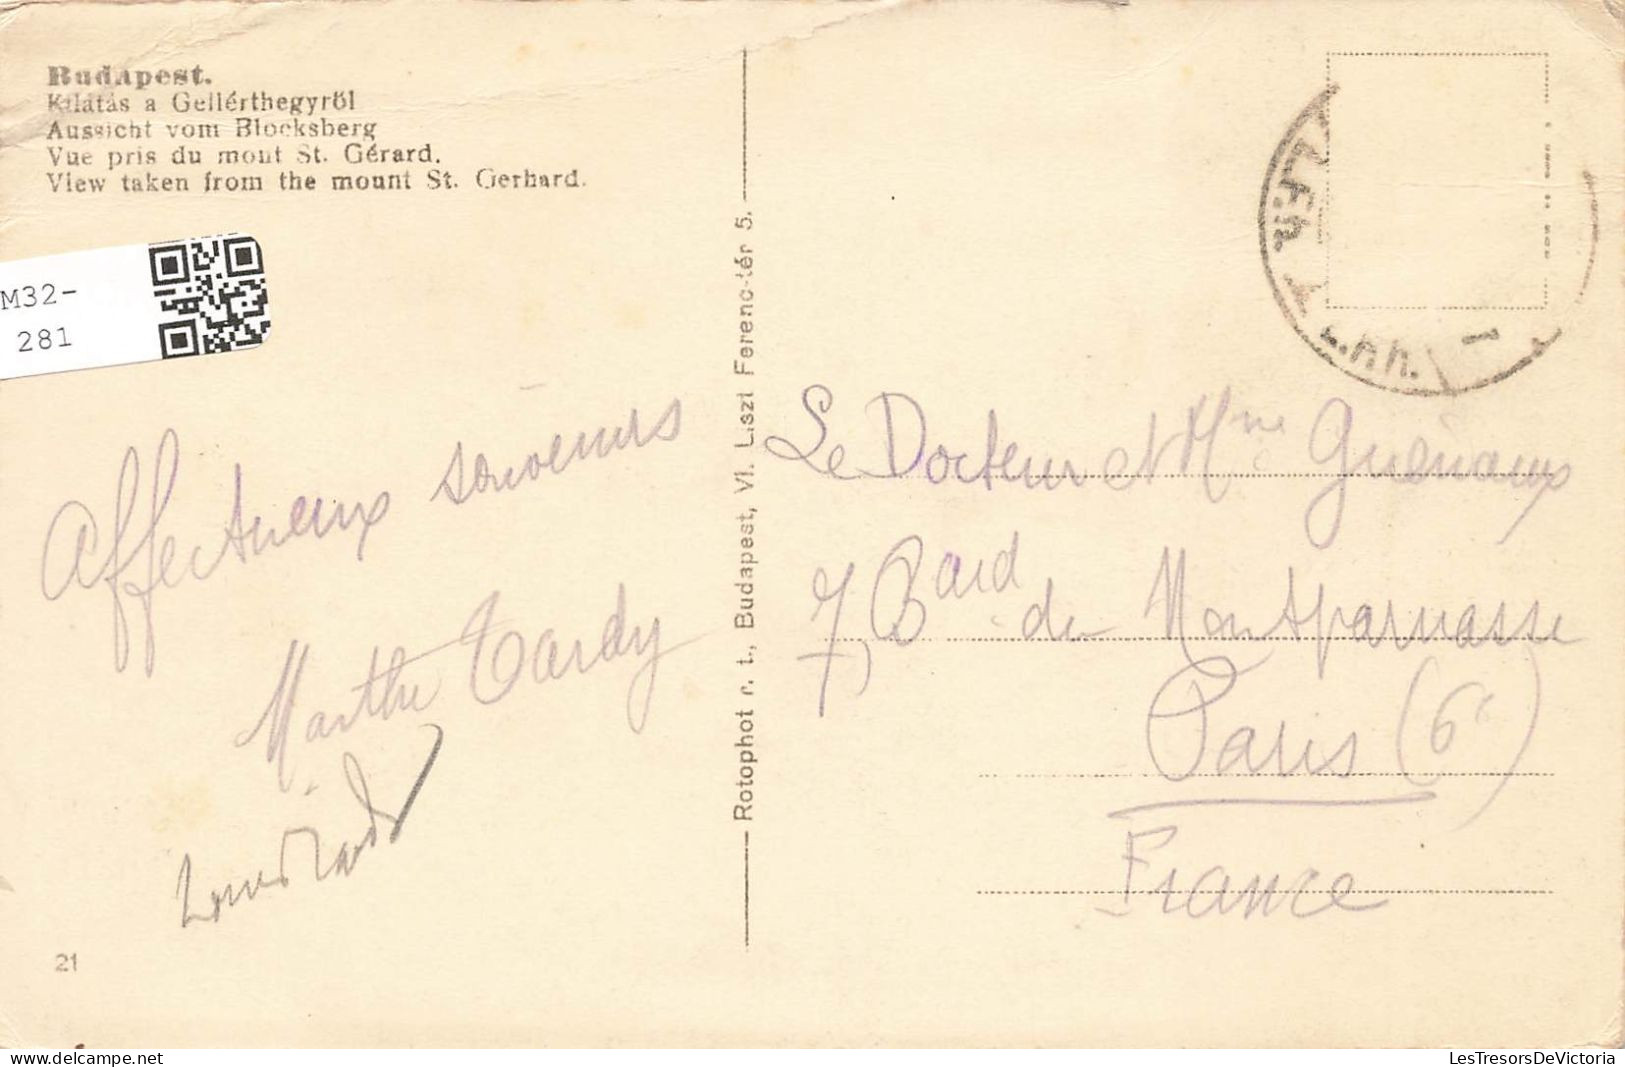 Budapest.
Kilátás a Gellérthegyről
Aussicht vom Blocksberg
Vue pris du mont St. Gérard.
View taken from the mount St. Gerhard.
M32-
281
Affectueux souvenirs
Marthe Tardy
21
Rotophot r. t., Budapest, VI. Liszt Ferenc-tér 5.
Le Docteur et Mme
7, Bard du Montparnasse
Paris (6e)
France
LesTresorsDeVictoria